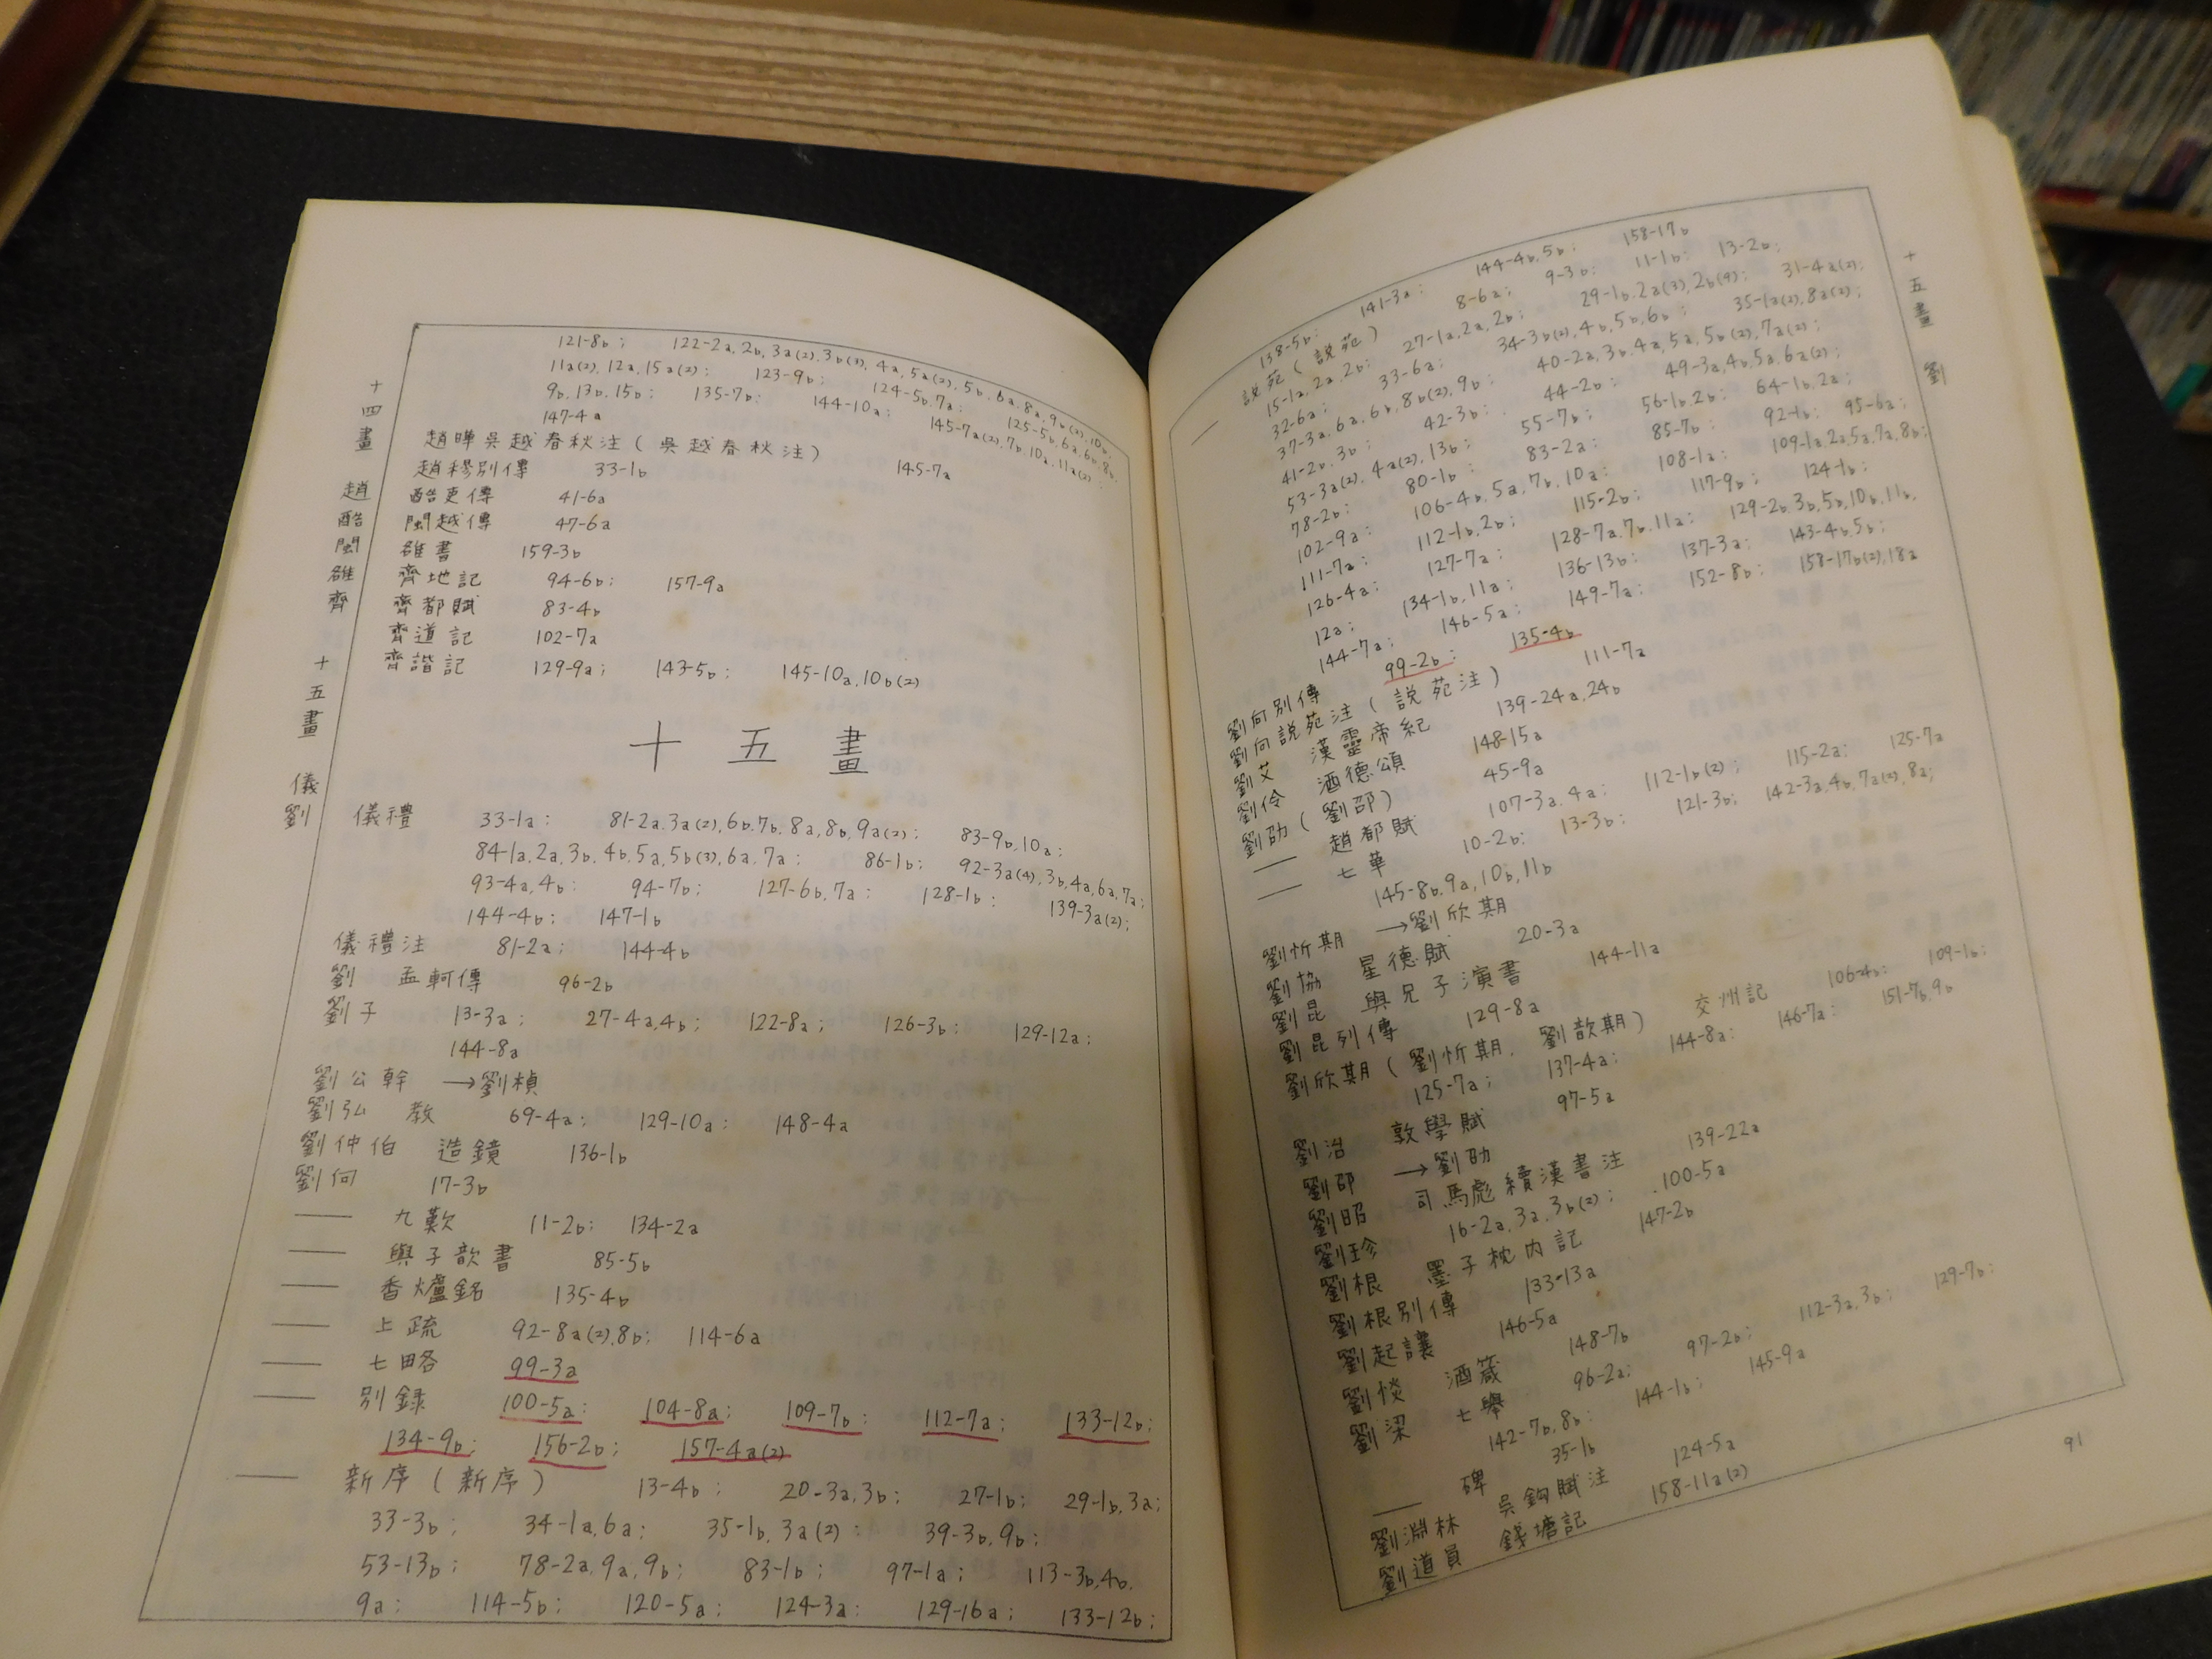 十四畫 趙酷閩雒齊 十五畫 儀劉
121-8b; 122-2a, 2b, 3a(2), 3b(3), 4a, 5a(2), 5b, 6a, 8a, 9b(2), 10b;
11a(2), 12a, 15a(2); 123-9b; 124-5b, 7a; 125-5b, 6a, 6b, 8b,
9b, 13b, 15b; 135-7b; 144-10a; 145-7a(2), 7b, 10a, 11a(2);
147-4a
趙曄吳越春秋注(吳越春秋注) 145-7a
趙穆別傳 33-1b
酷吏傳 41-6a
閩越傳 47-6a
雒書 159-3b
齊地記 94-6b; 157-9a
齊都賦 83-4b
齊道記 102-7a
齊諧記 129-9a; 143-5b; 145-10a, 10b(2)
十五畫
儀禮 33-1a; 81-2a, 3a(2), 6b, 7b, 8a, 8b, 9a(2); 83-9b, 10a;
84-1a, 2a, 3b, 4b, 5a, 5b(3), 6a, 7a; 86-1b; 92-3a(4), 3b, 4a, 6a, 7a;
93-4a, 4b; 94-7b; 127-6b, 7a; 128-1b; 139-3a(2);
144-4b; 147-1b
儀禮注 81-2a; 144-4b
劉 孟軻傳 96-2b
劉子 13-3a; 27-4a, 4b; 122-8a; 126-3b; 129-12a;
144-8a
劉公幹 →劉楨
劉弘 教 69-4a; 129-10a; 148-4a
劉仲伯 造鏡 136-1b
劉向 17-3b
—— 九歎 11-2b; 134-2a
—— 與子歆書 85-5b
—— 香爐銘 135-4b
—— 上疏 92-8a(2), 8b; 114-6a
—— 七略 99-3a
—— 別録 100-5a; 104-8a; 109-7b; 112-7a; 133-12b;
134-9b; 156-2b; 157-4a(2)
—— 新序(新序) 13-4b; 20-3a, 3b; 27-1b; 29-1b, 3a;
33-3b; 34-1a, 6a; 35-1b, 3a(2); 39-3b, 9b;
53-13b; 78-2a, 9a, 9b; 83-1b; 97-1a; 113-3b, 4b,
9a; 114-5b; 120-5a; 124-3a; 129-16a; 133-12b;
十五畫 劉
138-5b; 141-3a; 144-4b, 5b; 158-17b
—— 説苑(説苑) 8-6a; 9-3b; 11-1b; 13-2b;
15-1a, 2a, 2b; 27-1a, 2a, 2b; 29-1b, 2a(3), 2b(4); 31-4a(2);
32-6a; 33-6a; 34-3b(2), 4b, 5b, 6b; 35-1a(2), 8a(2);
37-3a, 6a, 6b, 8b(2), 9b; 40-2a, 3b, 4a, 5a, 5b(2), 7a(2);
41-2b, 3b; 42-3b; 44-2b; 49-3a, 4b, 5a, 6a(2);
53-3a(2), 4a(2), 13b; 55-7b; 56-1b, 2b; 64-1b, 2a;
78-2b; 80-1b; 83-2a; 85-7b; 92-1b; 95-6a;
102-9a; 106-4b, 5a, 7b, 10a; 108-1a; 109-1a, 2a, 5a, 7a, 8b;
111-7a; 112-1b, 2b; 115-2b; 117-9b; 124-1b;
126-4a; 127-7a; 128-7a, 7b, 11a; 129-2b, 3b, 5b, 10b, 11b,
12a; 134-1b, 11a; 136-13b; 137-3a; 143-4b, 5b;
144-7a; 146-5a; 149-7a; 152-8b; 158-17b(2), 18a
劉向別傳 99-2b; 135-4b
劉向説苑注(説苑注) 111-7a
劉艾 漢靈帝紀 139-24a, 24b
劉伶 酒德頌 148-15a
劉劭(劉邵) 45-9a
—— 趙都賦 107-3a, 4a; 112-1b(2); 115-2a; 125-7a
—— 七華 10-2b; 13-3b; 121-3b; 142-3a, 4b, 7a(2), 8a;
145-8b, 9a, 10b, 11b
劉忻期 →劉欣期
劉協 星德賦 20-3a
劉昆 與兄子演書 144-11a
劉昆列傳 129-8a
劉欣期(劉忻期, 劉歆期) 交州記 106-4b; 109-1b;
125-7a; 137-4a; 144-8a; 146-7a; 151-7b, 9b
劉治 敦學賦 97-5a
劉邵 →劉劭
劉昭 司馬彪續漢書注 139-22a
劉珍 16-2a, 3a, 3b(2); 100-5a
劉根 墨子枕内記 147-2b
劉根別傳 133-13a
劉起讓 146-5a
劉惔 酒箴 148-7b
劉梁 七舉 96-2a; 97-2b; 112-3a, 3b; 129-7b;
142-7b, 8b; 144-1b; 145-9a
—— 碑 35-1b
劉淵林 吳鈎賦注 124-5a
劉道員 錢塘記 158-11a(2)
91